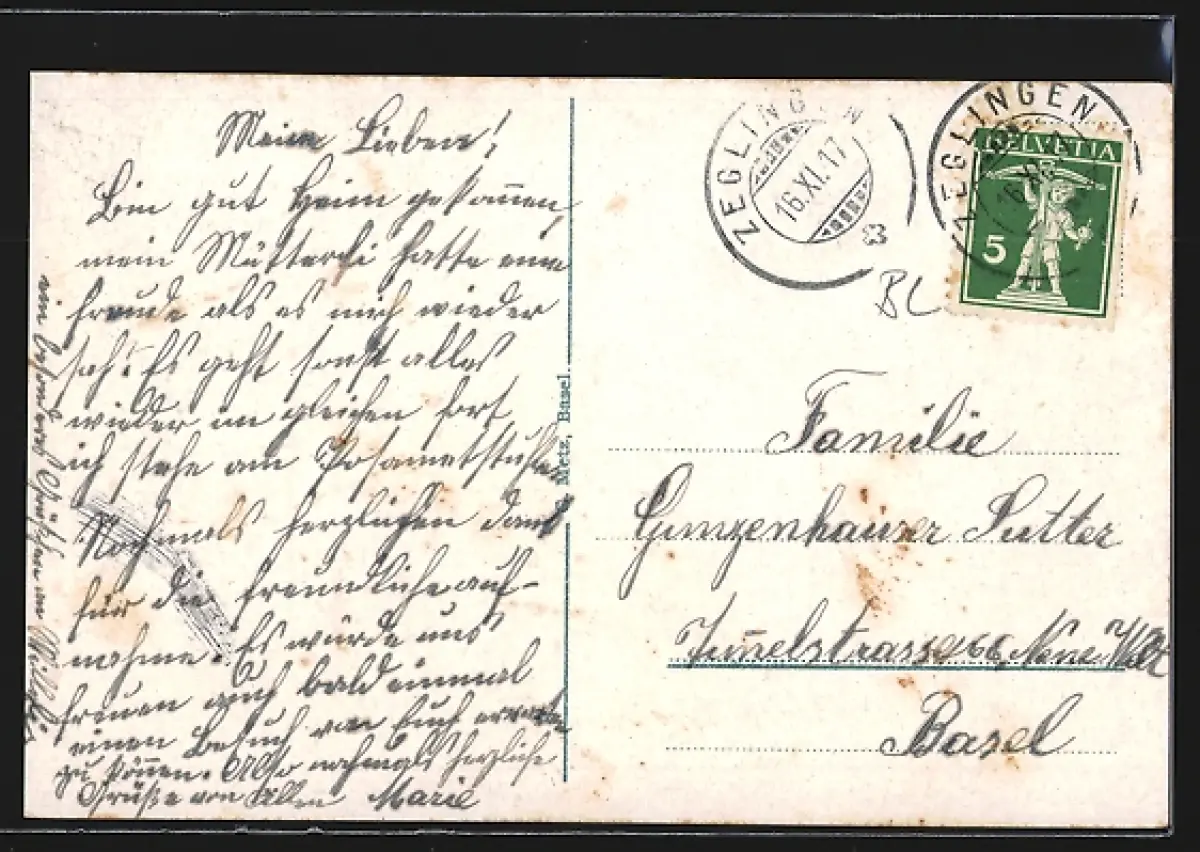 Meine Lieben!
Bin gut Heim gekom̄en,
mein Mütterchi hatte eine
Freude als es mich wieder
sah. Es geht sonst alles
wieder im gleichen fort,
ich stehe am Posamentstuhl
Nochmals herzlichen Dank
für die freundliche Auf-
nahme. Es würde uns
freuen auch bald einmal
einen Besuch von Euch erwarten
zu kön̄en. Also nochmals herzliche
Grüße von Allen Marie
ein besonderes
Metz, Basel.
ZEGLINGEN
16.XI.17
ZEGLINGEN
HELVETIA
5
BL
Familie
Gunzenhauser Sutter
66, Neue Welt
Basel